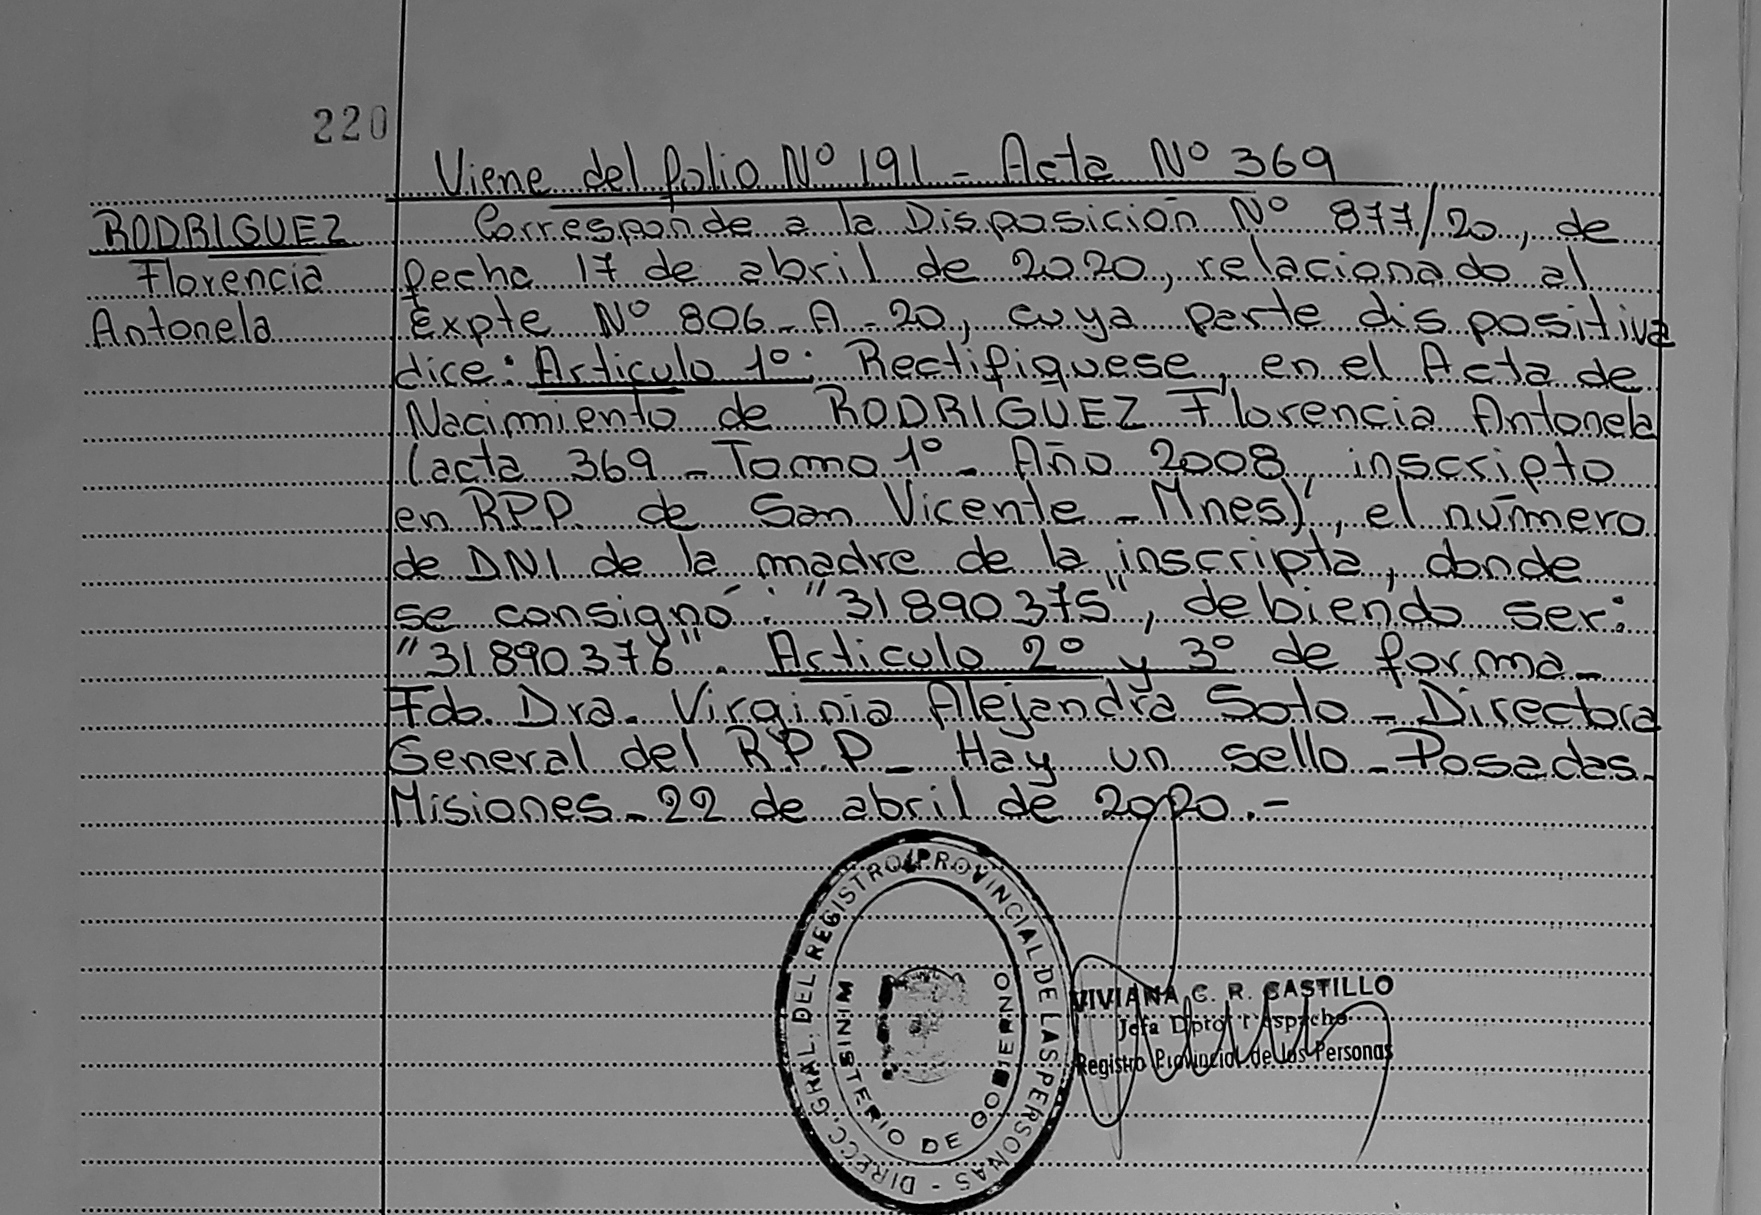 220
Viene del folio Nº 191 - Acta Nº 369
RODRIGUEZ
Florencia
Antonela
Corresponde a la Disposición Nº 877/20, de
fecha 17 de abril de 2020, relacionado al
Expte Nº 806-A-20, cuya parte dispositiva
dice: Articulo 1º: Rectifiquese, en el Acta de
Nacimiento de RODRIGUEZ Florencia Antonela
(acta 369 - Tomo 1º - Año 2008, inscripto
en R.P.P. de San Vicente - Mnes), el número
de DNI de la madre de la inscripta, donde
se consignó: "31.890.375", debiendo ser:
"31.890.376". Articulo 2º y 3º de forma-
Fdo. Dra. Virginia Alejandra Soto - Directora
General del R.P.P - Hay un sello - Posadas.
Misiones - 22 de abril de 2020.-
DIRECC. GRAL. DEL REGISTRO PROVINCIAL DE LAS PERSONAS -
MINISTERIO DE GOBIERNO
VIVIANA C. R. CASTILLO
Jefa Dpto.
Registro Provincial de las Personas